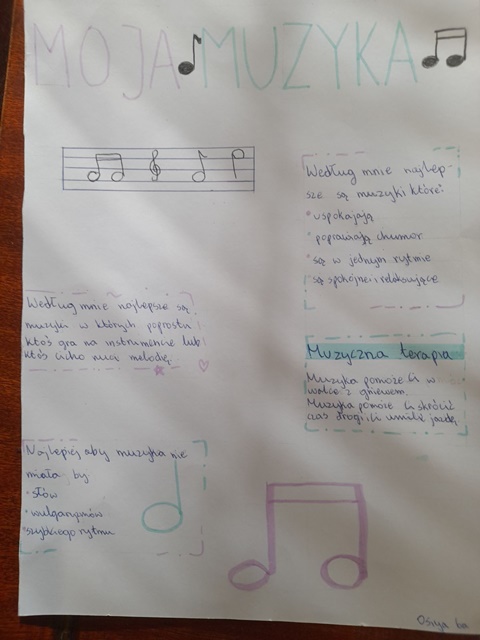 MOJA MUZYKA
Według mnie najlep-
sze są muzyki które:
*uspokajają
*poprawiają chumor
*są w jednym rytmie
*są spokojne i relaksujące
Według mnie najlepsze są
muzyki w których poprostu
ktoś gra na instrumencie lub
ktoś cicho nuci melodię.
Muzyczna terapia
Muzyka pomoże Ci w
walce z gniewem.
Muzyka pomoże Ci skrócić
czas drogi i Ci umilić jazdę
Najlepiej aby muzyka nie
miała by:
*słów
*wulgaryzmów
*szybkiego rytmu